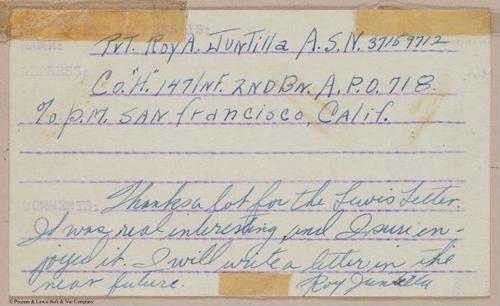 NAME:
Pvt. Roy A. Juntilla A.S.N. 37159712
ADDRESS:
Co. "H." 147 Inf. 2ND Bn. A.P.O. 718
c/o P.M. San Francisco, Calif.
COMMENTS:
Thanks a lot for the Lewis Letter.
It was real interesting and I sure en-
joyed it. I will write a letter in the
near future. Roy Juntilla
© Pozzem & Lewis Bolt & Nut Company